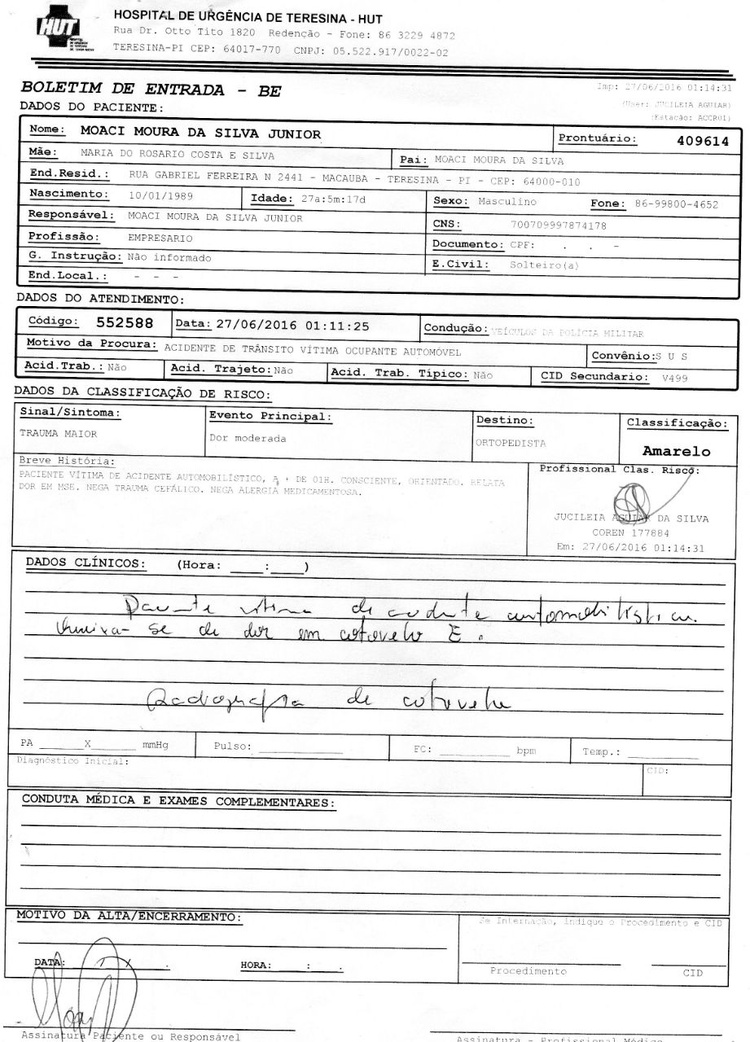 HUT
HOSPITAL DE URGÊNCIA DE TERESINA - HUT
Rua Dr. Otto Tito 1820 Redenção - Fone: 86 3229 4872
TERESINA-PI CEP: 64017-770 CNPJ: 05.522.917/0022-02
BOLETIM DE ENTRADA - BE
Imp: 27/06/2016 01:14:31
(User: JUCILEIA AGUIAR)
(Estacão: ACCR01)
DADOS DO PACIENTE:
Nome: MOACI MOURA DA SILVA JUNIOR Prontuário: 409614
Mãe: MARIA DO ROSARIO COSTA E SILVA Pai: MOACI MOURA DA SILVA
End.Resid.: RUA GABRIEL FERREIRA N 2441 - MACAUBA - TERESINA - PI - CEP: 64000-010
Nascimento: 10/01/1989 Idade: 27a:5m:17d Sexo: Masculino Fone: 86-99800-4652
Responsável: MOACI MOURA DA SILVA JUNIOR CNS: 700709997874178
Profissão: EMPRESARIO Documento: CPF: . . -
G. Instrução: Não informado E.Civil: Solteiro(a)
End.Local.: - - -
DADOS DO ATENDIMENTO:
Código: 552588 Data: 27/06/2016 01:11:25 Condução: VEÍCULOS DA POLÍCIA MILITAR
Motivo da Procura: ACIDENTE DE TRÂNSITO VÍTIMA OCUPANTE AUTOMÓVEL Convênio: S U S
Acid.Trab.: Não Acid. Trajeto: Não Acid. Trab. Típico: Não CID Secundario: V499
DADOS DA CLASSIFICAÇÃO DE RISCO:
Sinal/Sintoma: Evento Principal: Destino: Classificação:
TRAUMA MAIOR Dor moderada ORTOPEDISTA Amarelo
Breve História: Profissional Clas. Risco:
PACIENTE VÍTIMA DE ACIDENTE AUTOMOBILÍSTICO, + DE 01H. CONSCIENTE, ORIENTADO, RELATA
DOR EM MSE. NEGA TRAUMA CEFÁLICO. NEGA ALERGIA MEDICAMENTOSA.
JUCILEIA AGUIAR DA SILVA
COREN 177884
Em: 27/06/2016 01:14:31
DADOS CLÍNICOS: (Hora: ____:____)
Paciente vítima de acidente automobilístico.
Queixa-se de dor em cotovelo E.
Radiografia de cotovelo
PA ______X______ mmHg Pulso: ____________ FC: __________ bpm Temp.: __________
Diagnóstico Inicial: CID:
CONDUTA MÉDICA E EXAMES COMPLEMENTARES:
MOTIVO DA ALTA/ENCERRAMENTO: Se Internação, indique o Procedimento e CID
DATA: / / . HORA: : .
Procedimento CID
Assinatura Paciente ou Responsável Assinatura - Profissional Médico